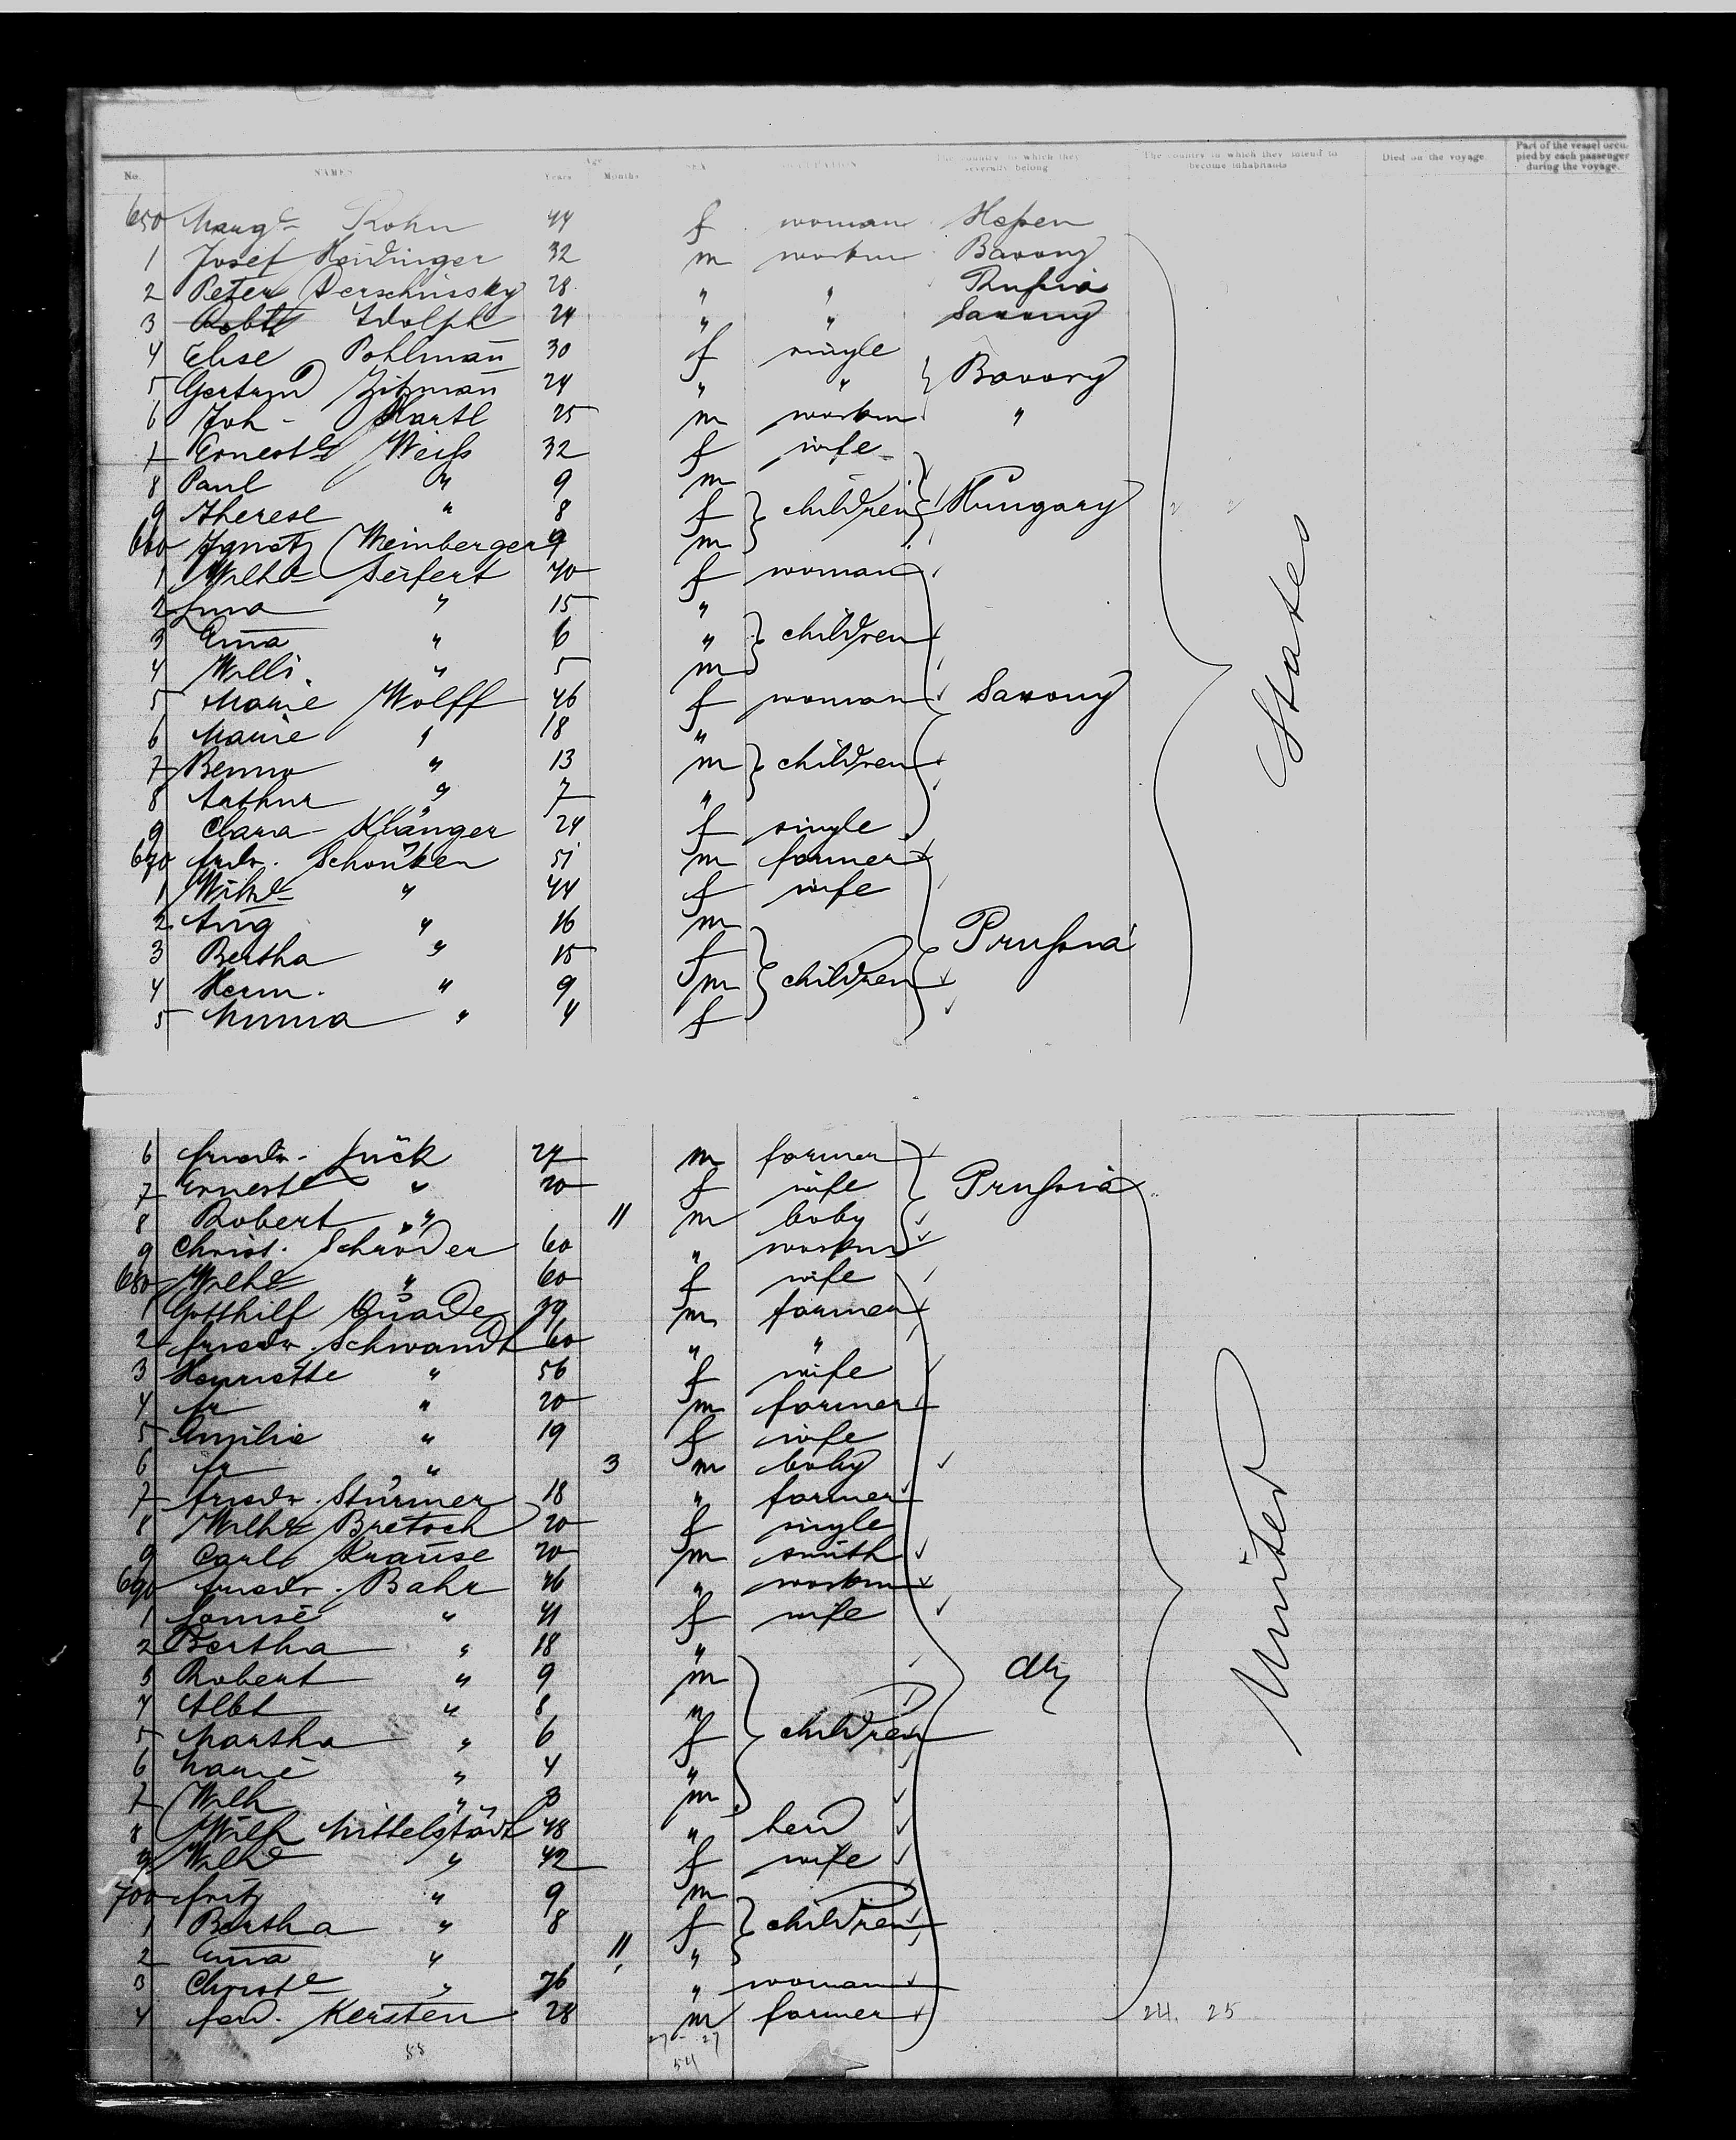 No. NAMES Age Years Months SEX OCCUPATION The country to which they severally belong The country in which they intend to become inhabitants Died on the voyage Part of the vessel occupied by each passenger during the voyage.
650 Margte Rohn 44 f woman Heßen
1 Josef Heidinger 32 m workm Bavary
2 Peter 28 " " Rußia
3 Robt Adolph 24 " " Saxony
4 Elise Pohlman̅ 30 f single
5 Gertrud Zitzman̅ 24 " " } Bavary
6 Joh- Hartl 25 m workm "
7 Ernestе Weiß 32 f wife
8 Paul " 9 m
9 Therese " 8 f } children } Hungary
660 Ignatz Weinberger 9 m
1 Wilhe Seifert 40 f woman
2 " 15 "
3 Em̅a " 6 " } children
4 Willi " 5 m
5 Marie Wolff 46 f woman Saxony
6 Marie " 18 "
7 Benno " 13 m } children
8 Arthur " 7 "
9 Clara Klänger 24 f single
670 51 m farmer
1 Wilhe " 44 f wife
2 Aug " 16 m
3 Bertha " 15 f Prußia
4 Herm. " 9 m } children
5 Minna " 4 f
States
6 Friedr. Lück 24 m farmer
7 Erneste " 20 f wife } Prußia
8 Robert " 11 m baby
9 Christ. Schröder 60 " workm
680 Wilhe " 60 f wife
1 Gotthilf Quade 39 m farmer
2 Friedr. Schwandt 60 " "
3 Henriette " 56 f wife
4 Fr " 20 m farmer
5 Emilie " 19 f wife
6 Fr " 3 m baby
7 Friedr. Stürmer 18 " farmer
8 Wilhe Bretsch 20 f single
9 Carl Krause 20 m smith
690 Friedr. Bahr 46 " workm
1 Louise " 41 f wife
2 Bertha " 18 "
3 Robert " 9 m
4 Albt " 8 "
5 Martha " 6 f } children
6 Marie " 4 "
7 Wilh " 3 m
8 Wilh Mittelstädt 48 "
9 Wilhe " 42 f wife
700 Fritz " 9 m
1 Bertha " 8 f } children
2 Em̅a " 11 "
3 Christe " 76 " woman
4 Ferd. Kersten 28 m farmer
United
24. 25
27 - 27
54